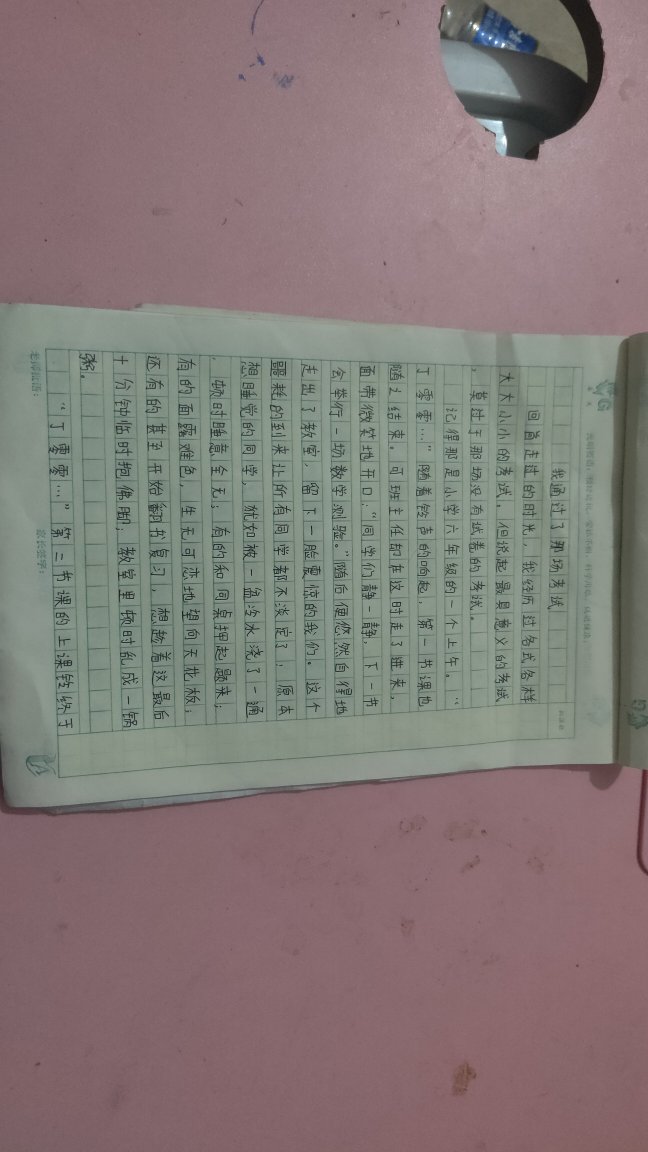 我通过了那场考试
回首走过的时光，我经历过各式各样
大大小小的考试。但说起最具意义的考试
，莫过于那场没有试卷的考试。
记得那是小学六年级的一个上午。“
丁零零…”随着铃声的响起，第一节课也
随之结束。可班主任却在这时走了进来，
面带微笑地开口：“同学们静一静，下一节
会举行一场数学测验。”随后便悠然自得地
走出了教室，留下一脸震惊的我们。这个
噩耗的到来让所有同学都不淡定了，原本
想睡觉的同学，犹如被一盆冷水浇了一通
，顿时睡意全无；有的和同桌押起题来；
有的面露难色，生无可恋地望向天花板；
还有的甚至开始翻书复习，想趁着这最后
十分钟临时抱佛脚；教室里顿时乱成一锅
粥。
“丁零零…”第二节课的上课铃终于
老师评语：
家长签字：